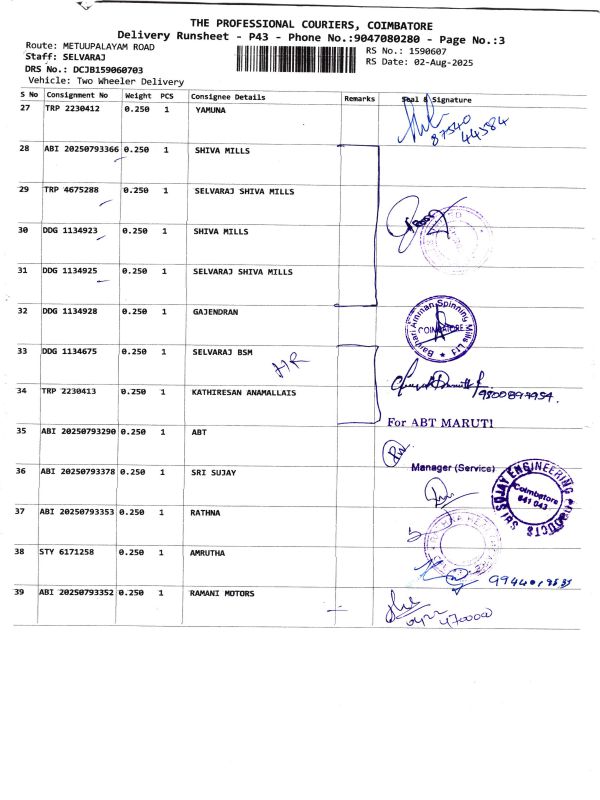 THE PROFESSIONAL COURIERS, COIMBATORE
Delivery Runsheet - P43 - Phone No.:9047080280 - Page No.:3
Route: METUUPALAYAM ROAD
Staff: SELVARAJ
DRS No.: DCJB159060703
Vehicle: Two Wheeler Delivery
RS No.: 1590607
RS Date: 02-Aug-2025
S No Consignment No Weight PCS Consignee Details Remarks Seal & Signature
27 TRP 2230412 0.250 1 YAMUNA
87540
44584
28 ABI 20250793366 0.250 1 SHIVA MILLS
29 TRP 4675288 0.250 1 SELVARAJ SHIVA MILLS
30 DDG 1134923 0.250 1 SHIVA MILLS
31 DDG 1134925 0.250 1 SELVARAJ SHIVA MILLS
32 DDG 1134928 0.250 1 GAJENDRAN
Bannari Amman Spinning Mills Ltd
COIMBATORE
33 DDG 1134675 0.250 1 SELVARAJ BSM
HR
34 TRP 2230413 0.250 1 KATHIRESAN ANAMALLAIS
For ABT MARUTI
35 ABI 20250793290 0.250 1 ABT
Manager (Service)
36 ABI 20250793378 0.250 1 SRI SUJAY
SRI SUJAY ENGINEERING PRODUCTS
Coimbatore
641 043
37 ABI 20250793353 0.250 1 RATHNA
38 STY 6171258 0.250 1 AMRUTHA
39 ABI 20250793352 0.250 1 RAMANI MOTORS